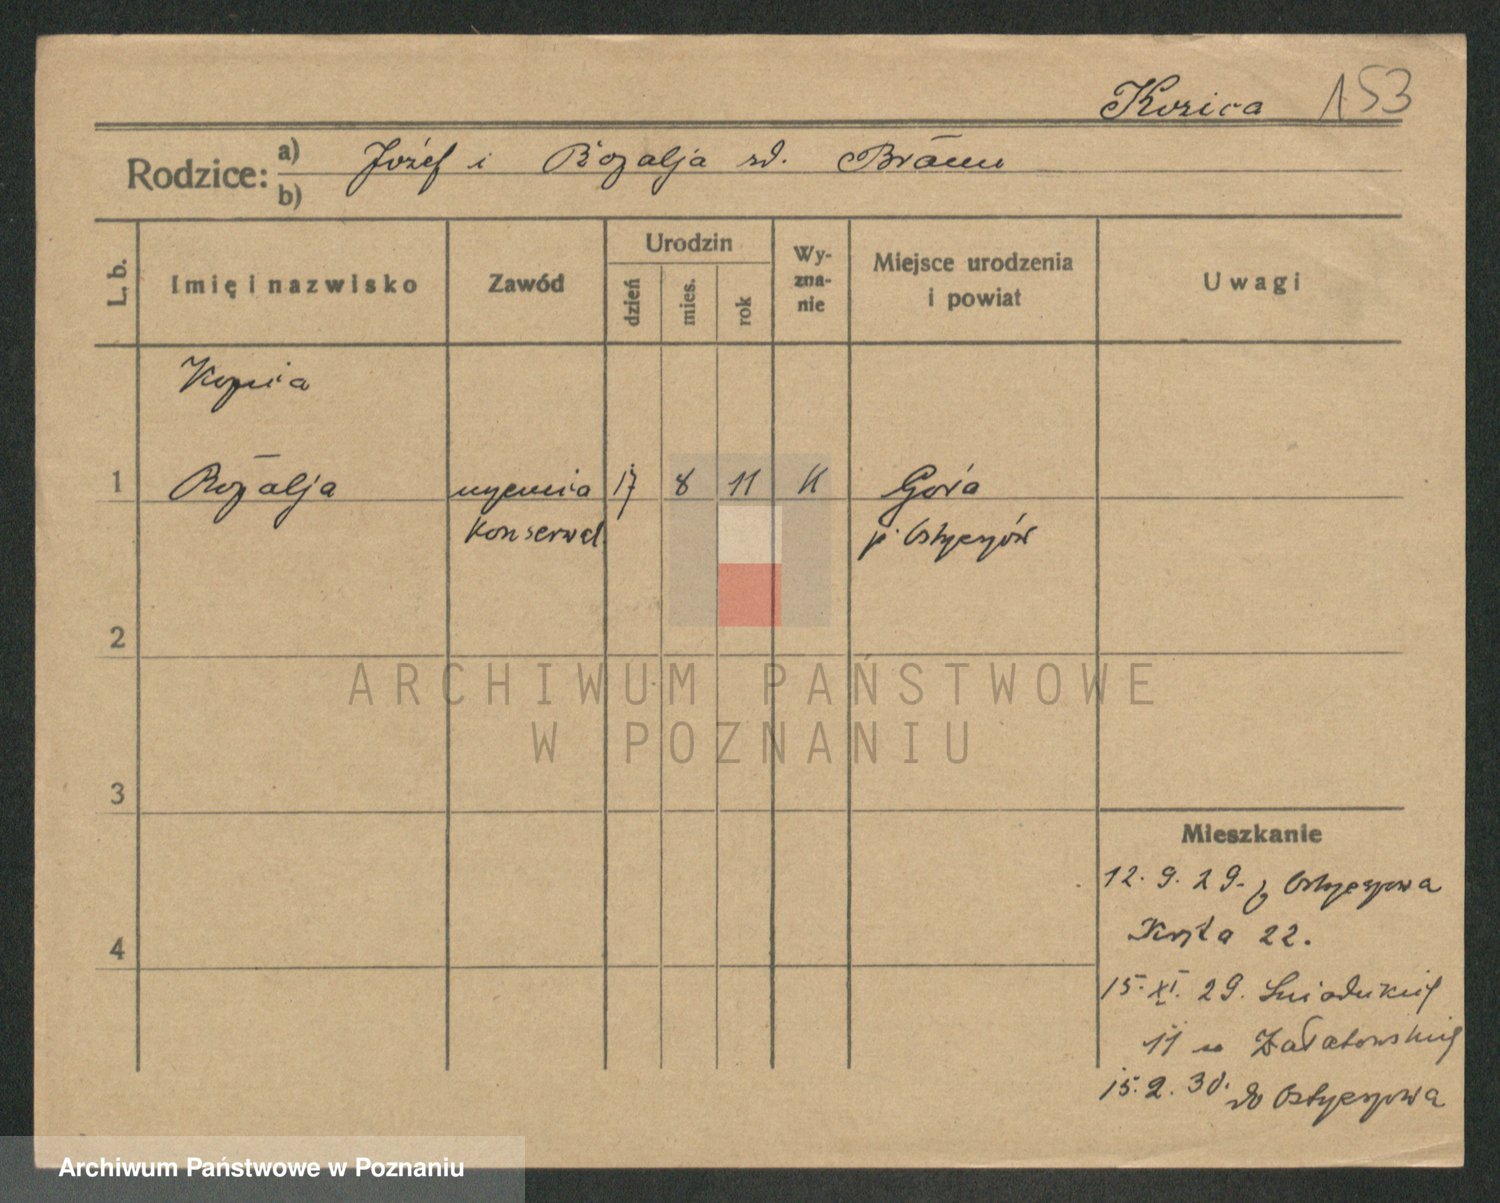 Kozica 153
Rodzice: a) Józef i Rozalja zd. Braun
b)
L. b.
Imię i nazwisko
Zawód
Urodzin
dzień
mies.
rok
Wy-
zna-
nie
Miejsce urodzenia
i powiat
Uwagi
Kozica
1 Rozalja uczenica 17 8 11 K Góra
Konserwat. p. Ostrzeszów
2
ARCHIWUM PAŃSTWOWE
W POZNANIU
3
Mieszkanie
12. 9. 29. z Ostrzeszowa
Kręta 22.
4
15. XI. 29. Śniadeckich
11 u Załatowskiej
15. 2. 30. do Ostrzeszowa
Archiwum Państwowe w Poznaniu